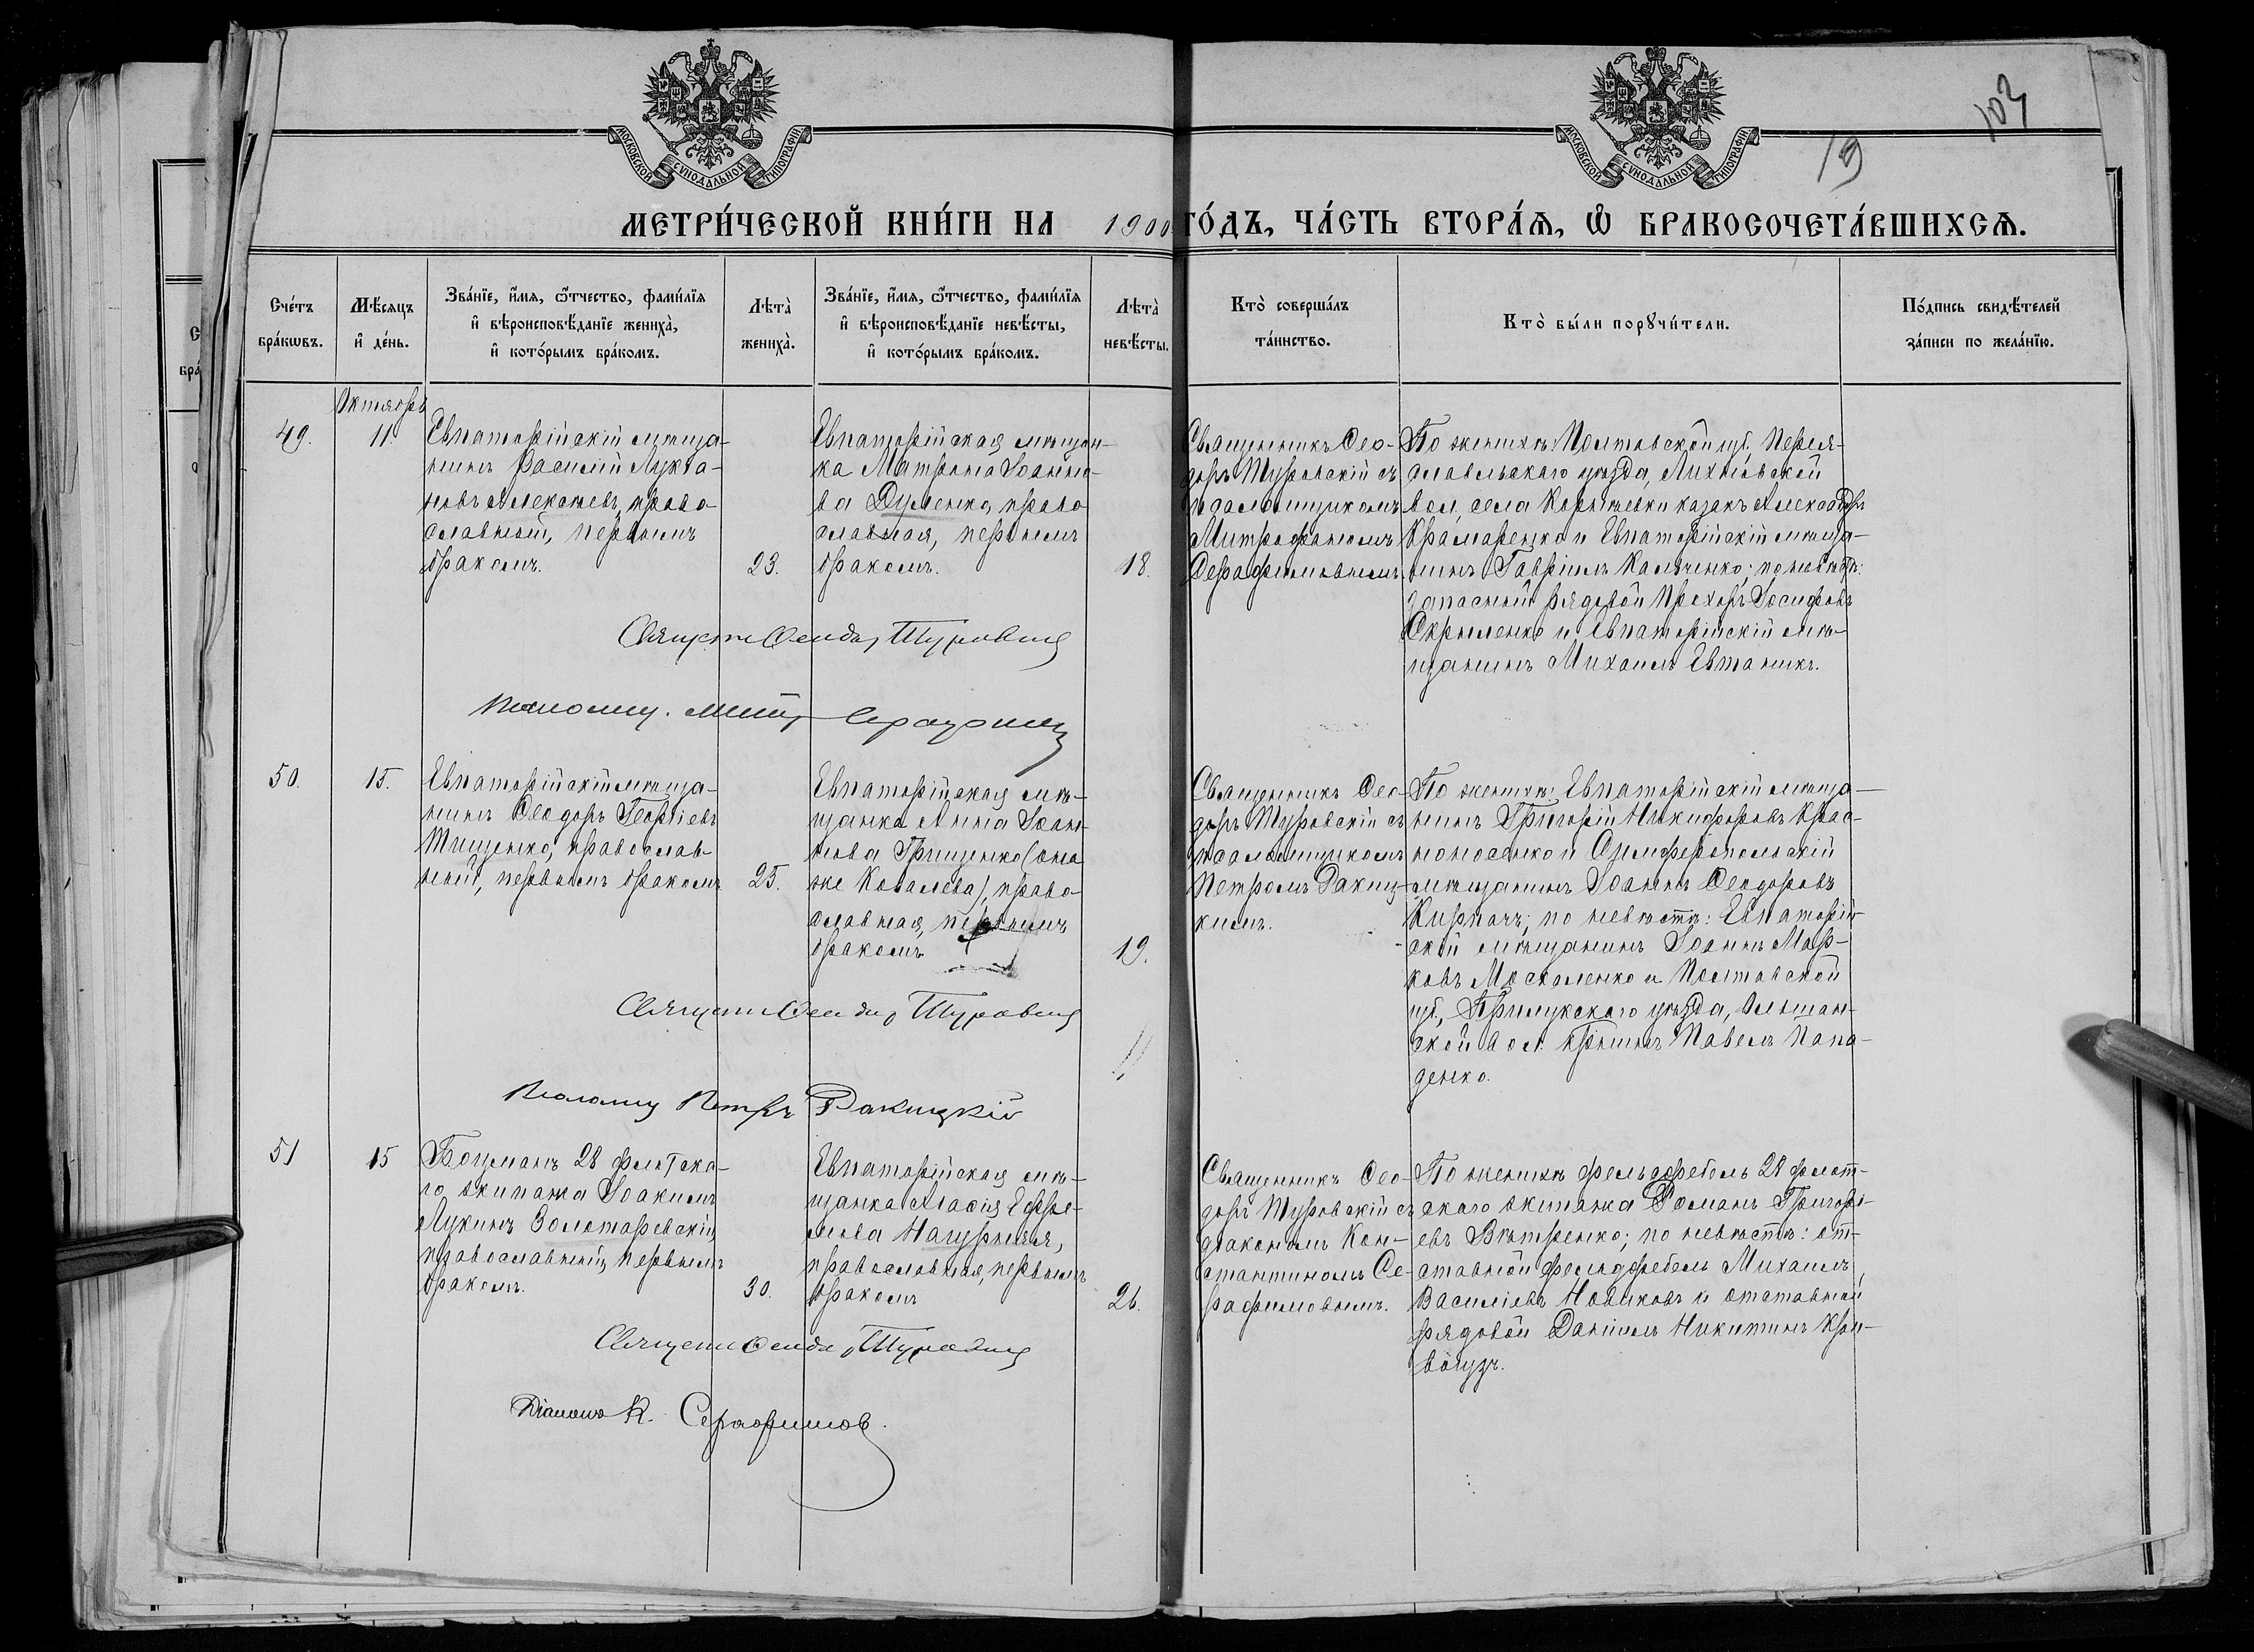 103
19
МОСКОВСКОЙ СѴНОДАЛЬНОЙ ТИПОГРАФІИ
МОСКОВСКОЙ СѴНОДАЛЬНОЙ ТИПОГРАФІИ
МЕТРИ́ЧЕСКОЙ КНИ́ГИ НА 1900 ГО́ДЪ, ЧА́СТЬ ВТОРА́Ѧ, Ѽ БРАКОСОЧЕТА́ВШИХСѦ.
Сче́тъ
бра́кѡвъ.
Мѣ́сяцъ
и҆ де́нь.
Зва́нїе, и҆́мя, ѻ҆́тчество, фами́лїя
и҆ вѣроисповѣ́данїе жениха̀,
и҆ кото́рымъ бра́комъ.
Лѣта̀
жениха̀.
Зва́нїе, и҆́мя, ѻ҆́тчество, фами́лїя
и҆ вѣроисповѣ́данїе невѣ́сты,
и҆ кото́рымъ бра́комъ.
Лѣта̀
невѣ́сты.
Кто̀ соверша́лъ
та́инство.
Кто̀ бы́ли порꙋчи́тели.
По́дпись свидѣ́телей
за́писи по жела́нїю.
Октябрь
49.
11.
Евпаторійскій мѣща-
нинъ Василій Лукія-
новъ Алексѣевъ, право-
славный, первымъ
бракомъ.
23.
Евпаторійская мѣщан-
ка Матрона Іоанно-
ва Дуленко, право
славная, первымъ
бракомъ.
18.
Священникъ Ѳео-
доръ Туровскій съ
псаломщикомъ
Митрофаномъ
Серафимовымъ.
По женихѣ: Полтавской губ., Перея-
славльскаго уѣзда,
вол., села казакъ Александръ
Крамаренко и Евпаторійскій мѣща-
нинъ Гавріилъ Кальченко; по невѣстѣ:
запасный рядовой Прохоръ Іосифовъ
Скрыленко и Евпаторійскій мѣ-
щанинъ Михаилъ
Священ Ѳеодор Туровскій
Псаломщ. Митр Серафимов
50.
15.
Евпаторійскій мѣща-
нинъ Ѳеодоръ Георгіевъ
Тищенко, православ-
ный, первымъ бракомъ
25.
Евпаторійская мѣ-
щанка Анна Іоан-
нова Грищенко (она
же Ковалева), право-
славная, первымъ
бракомъ
19.
Священникъ Ѳео-
доръ Туровскій съ
псаломщикомъ
Петромъ Ракиц-
кимъ.
По женихѣ: Евпаторійскій мѣща-
нинъ Григорій Никифоровъ Крас-
ноносенко и Симферопольскій
мѣщанинъ Іоаннъ Ѳеодоровъ
Кирпачъ; по невѣстѣ: Евпаторій-
скій мѣщанинъ Іоаннъ Мар-
ковъ Москаленко и Полтавской
губ., Прилукскаго уѣзда, Ольшан-
ской вол. кр-нинъ Павелъ Папа-
денко.
Священ Ѳеодор Туровскій
Псаломщ Петръ Ракицкій
51
15
Боцманъ 28 флотска-
го экипажа Іоакимъ
Лукинъ Золотаревскій,
православный, первымъ
бракомъ.
30.
Евпаторійская мѣ-
щанка Агаѳія Ефре-
мова Нагурная,
православная, первымъ
бракомъ
26.
Священникъ Ѳео-
доръ Туровскій съ
діакономъ Кон-
стантиномъ Се-
рафимовымъ.
По женихѣ фельдфебель 28 флот-
скаго экипажа Романъ Григорь-
евъ Вѣтренко; по невѣстѣ: от-
ставной фельдфебель Михаилъ
Василіевъ Новиковъ и отставной
рядовой Даніилъ Никитинъ Кри-
вогузъ.
Священ Ѳеодор Туровскій
Діаконъ К. Серафимов.